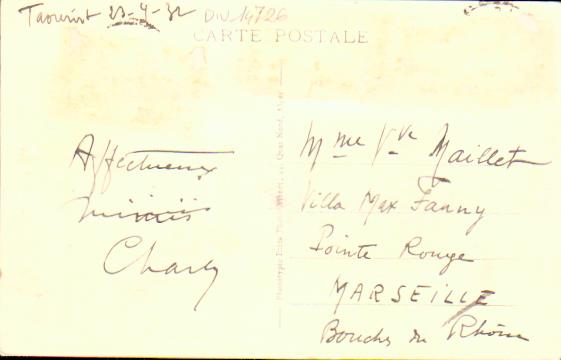 Taourirt 23-4-32 DIV 14726
CARTE POSTALE
Affectueux
mimis
Charly
Mme Vve Maillet
Villa Max Fanny
Pointe Rouge
MARSEILLE
Bouches du Rhône